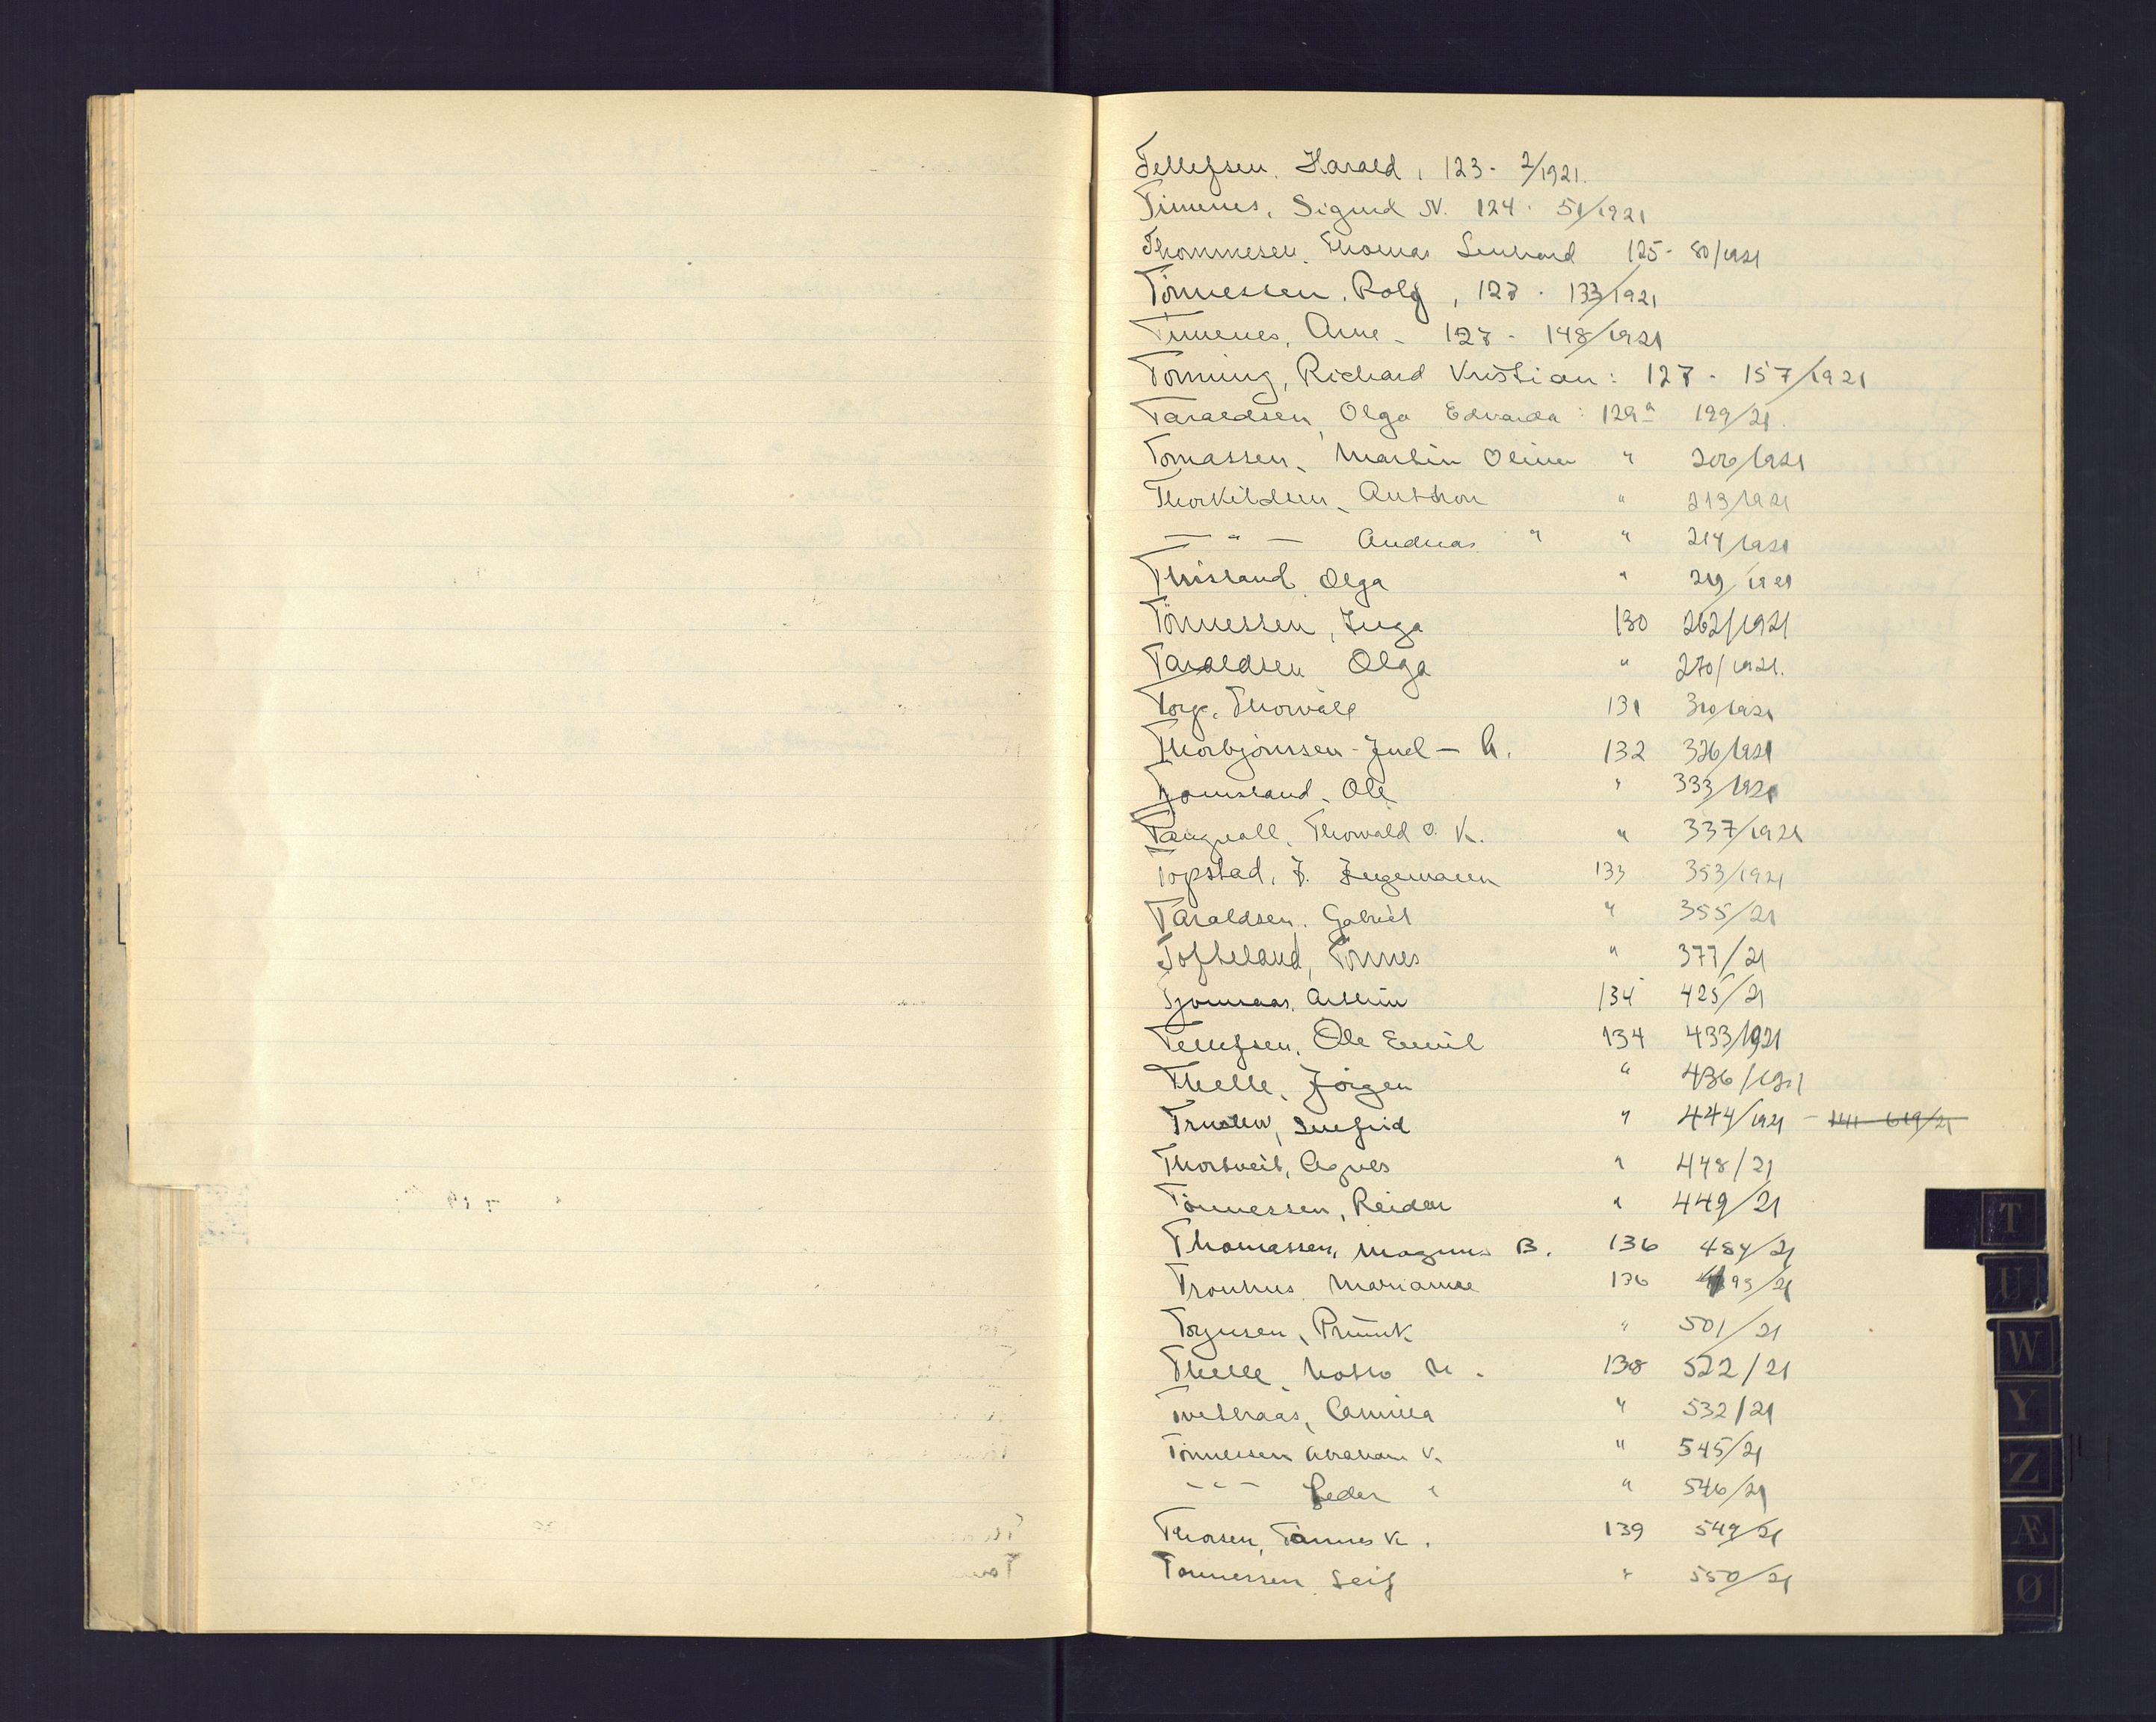 Tellefsen, Harald, 123 - 2/1921.
Timenes, Sigurd N. 124 - 51/1921
Thommesen, Thomas Lenhard 125 - 80/1921
Tönnessen, Rolf, 127 - 133/1921
Timenes, Arne - 127 - 148/1921
Tönning, Richard Kristian: 127 - 157/1921
Taraldsen, Olga Edvarda: 129a 199/21.
Tomassen, Martin Oliver " 206/1921
Thorkildsen, Anthon " 213/1921
— " — Andreas " " 214/1921
Olga " 219/1921
Tönnessen, Inga 130 262/1921
Taraldsen Olga " 270/1921.
Torp, Thorvald 131 310/1921
Thorbjörnssen - Juel - A. 132 326/1921
Tjomsland, Ole " 333/1921
Tangvall, Thorvald O. K. " 337/1921
Topstad, J. Ingemann 133 353/1921
Taraldsen, Gabriel " 355/21
Tofteland, Tönnes " 377/21
Tjomaas, 134 425/21
Tellefsen, Ole Emil 134 433/1921
Thelle, Jörgen " 436/1921
444/1921 - 141 - 619/21
Thortveit, Agnes " 448/21
Tönnessen, Reidar " 449/21
Thomassen, Magnus B. 136 484/21
Tronhus, Marianne 136 495/21
Torjusen, " 501/21
Thelle, M. 138 522/21
Tvetraas, Camilla " 532/21
Tönnessen Abraham V. " 545/21
- " - Peder " " 546/21
Thorsen, Tönnes K. 139 549/21
Tönnessen, Leif " 550/21
T
U
W
Y
Z
Æ
Ø